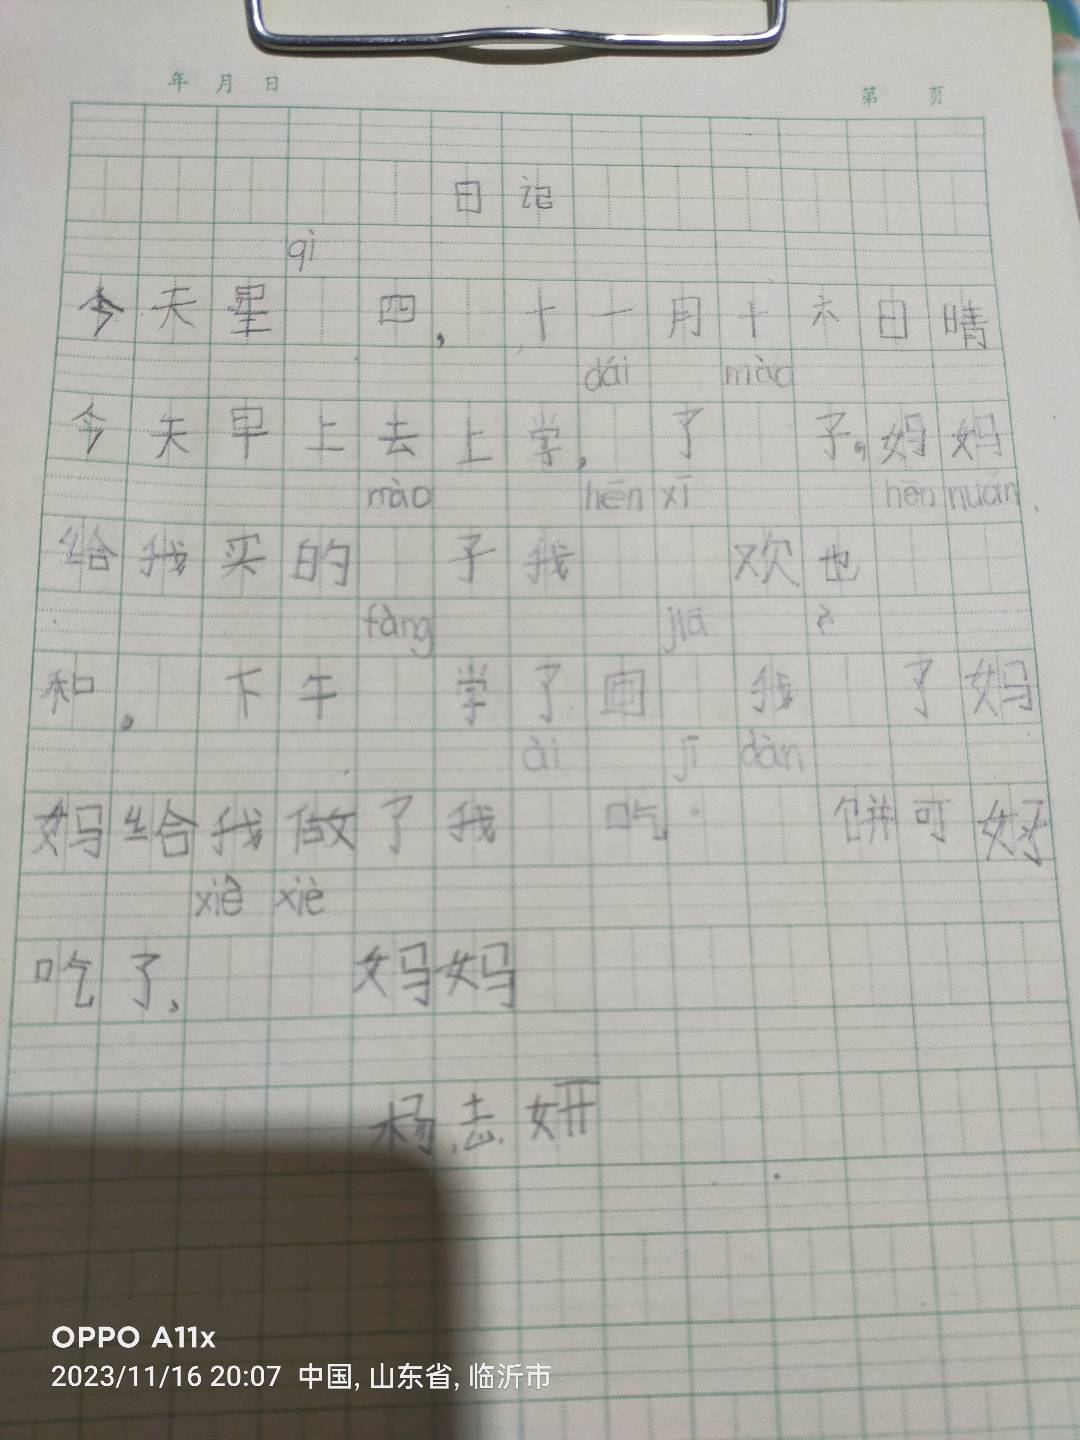 年 月 日
第 页
日记
qì
今天星 四，十一月十六日晴
dái mào
今天早上去上学，了 子，妈妈
mào hēn xī hēn nuán
给我买的 子我 欢也
fàng jiā è
和。下午 学了回 我 了妈
ài jī dàn
妈给我做了我 吃 饼可好
xiè xiè
吃了， 妈妈
杨志妍
OPPO A11x
2023/11/16 20:07 中国, 山东省, 临沂市